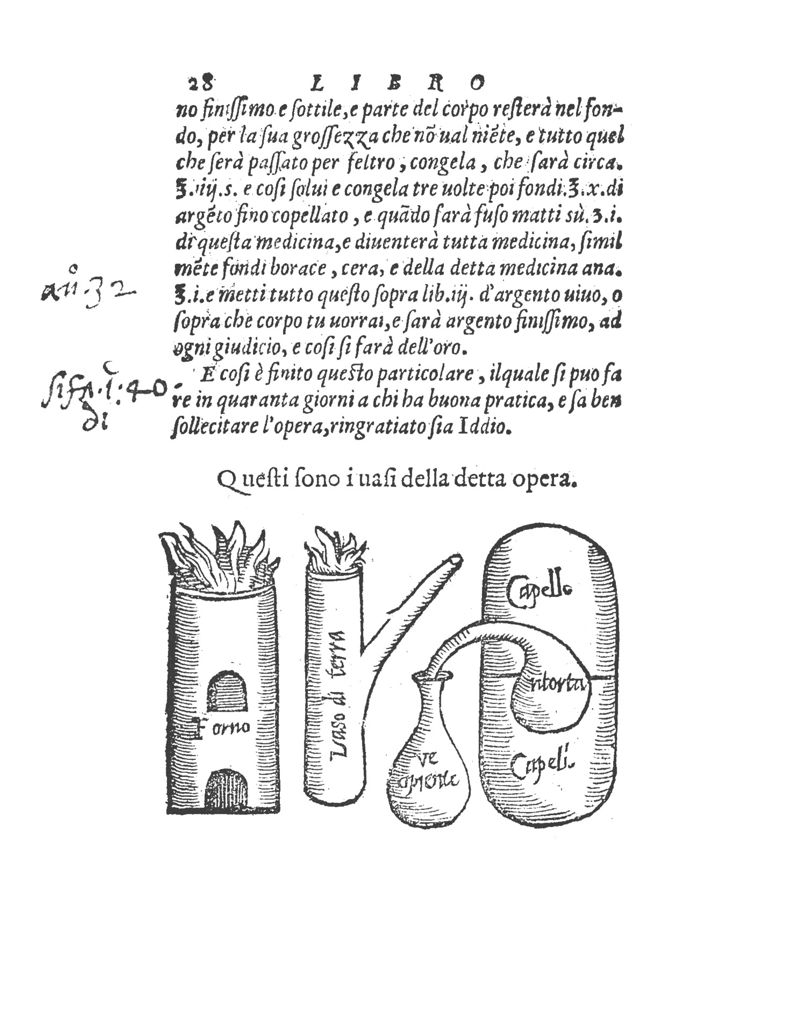 28 LIBRO
no finiſſimo e ſottile, e parte del corpo reſterà nel fon-
do, per la ſua groſſezza che nõ ual niẽte, e tutto quel
che ſerà paſſato per feltro, congela, che ſarà circa.
℥.iij.s. e coſi ſolui e congela tre uolte poi fondi.℥.x.di
argẽto fino copellato, e quãdo ſarà fuſo matti sù.℥.i.
di queſta medicina, e diuenterà tutta medicina, ſimil
mẽte fondi borace, cera, e della detta medicina ana.
℥.i.e metti tutto queſto ſopra lib.iij. d'argento uiuo, o
ſopra che corpo tu uorrai, e ſarà argento finiſſimo, ad
ogni giudicio, e coſi ſi farà dell'oro.
E coſi è finito queſto particolare, ilquale ſi puo fa
re in quaranta giorni a chi ha buona pratica, e ſa ben
ſollecitare l'opera, ringratiato ſia Iddio.
32
40
di
Queſti ſono i uaſi della detta opera.
Forno
Vaso di terra
Capello
ritorta
Capeli.